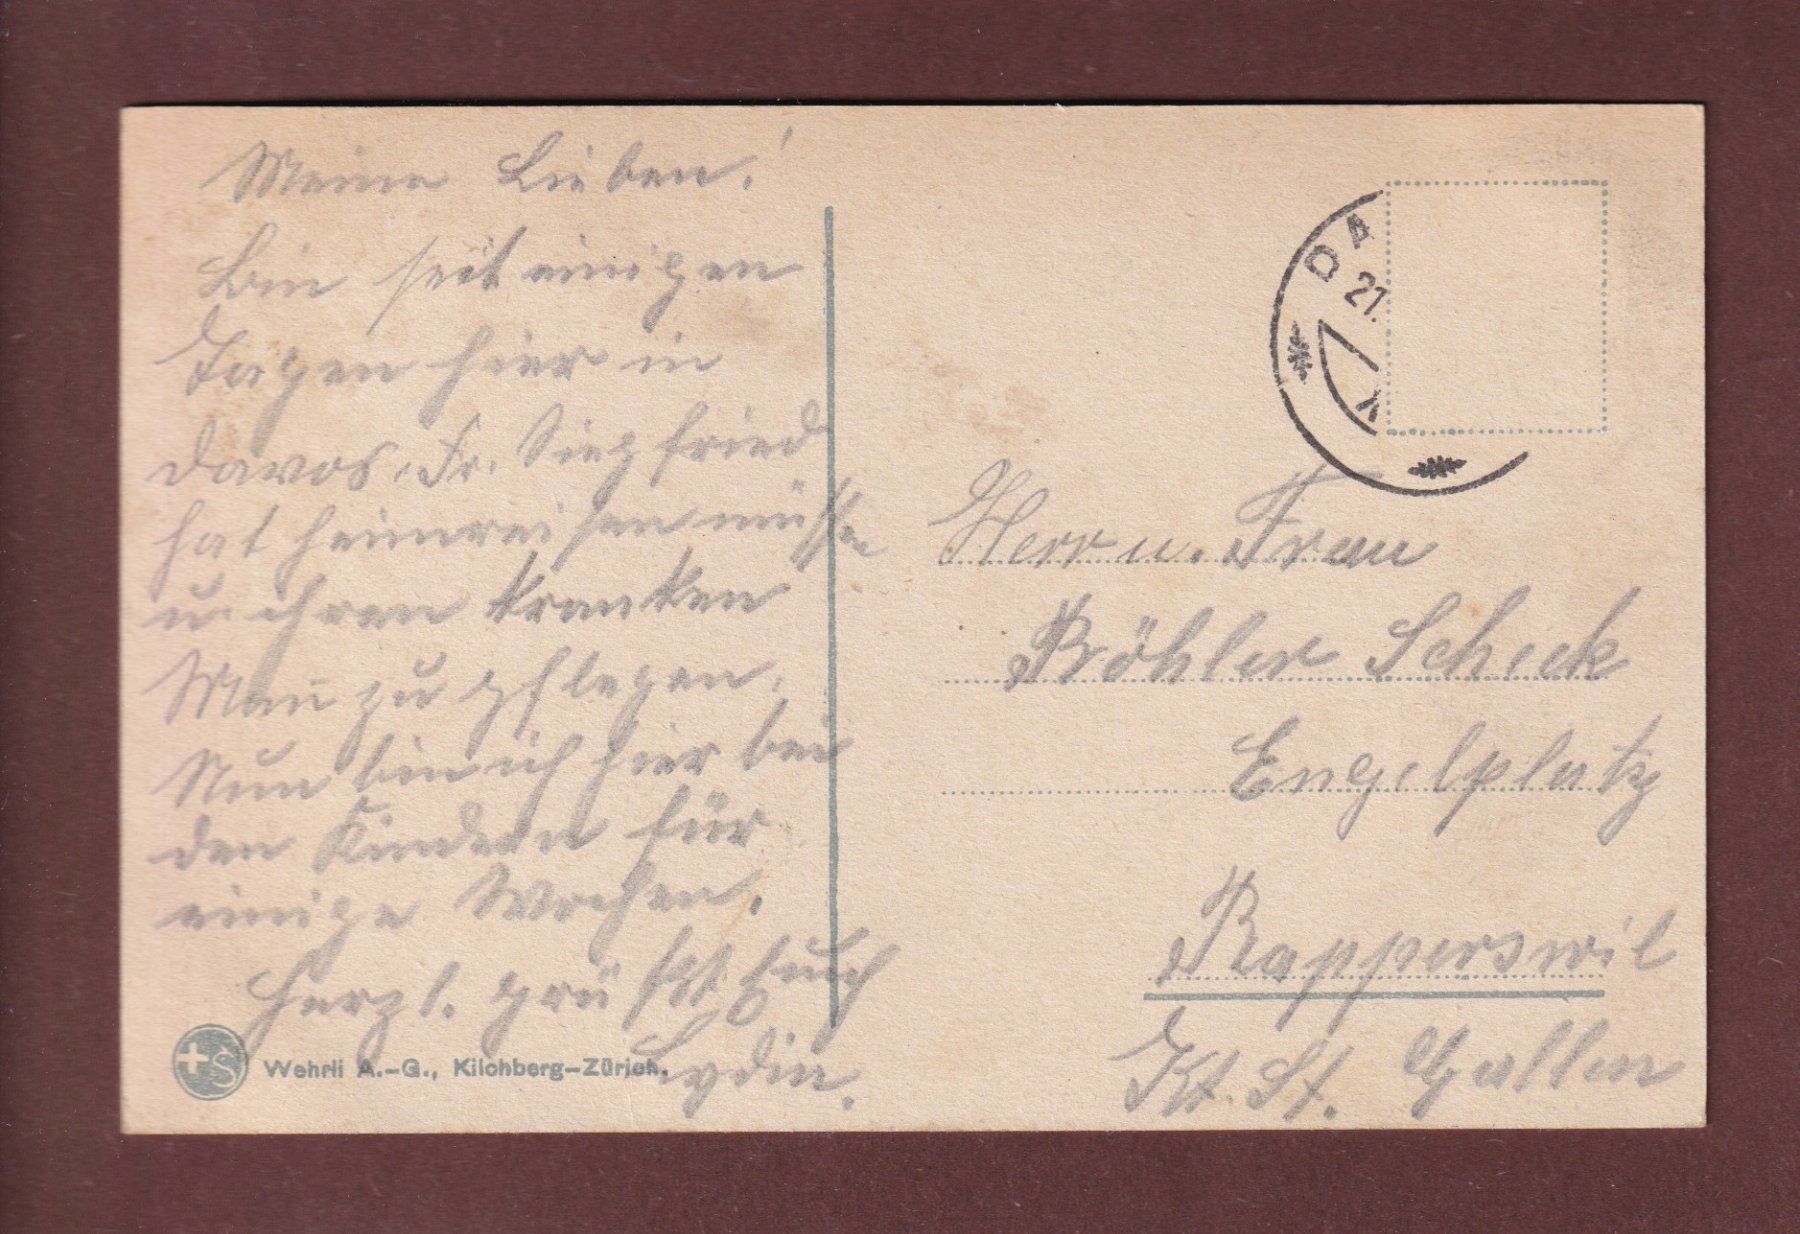 Meine Lieben!
Bin seit einigen
Tagen hier in
Davos. Fr. Siegfried
hat heimreisen müssen
u. ihren kranken
Man̄ zu pflegen.
Nun bin ich hier bei
den Kindern für
einige Wochen.
Herzl. grüsst Euch
Lydia.
Wehrli A.-G., Kilchberg-Zürich.
+S
DA
21.
Herr u. Frau
Röhler Scheck
Engelplatz
Rapperswil
Kt. St. Gallen